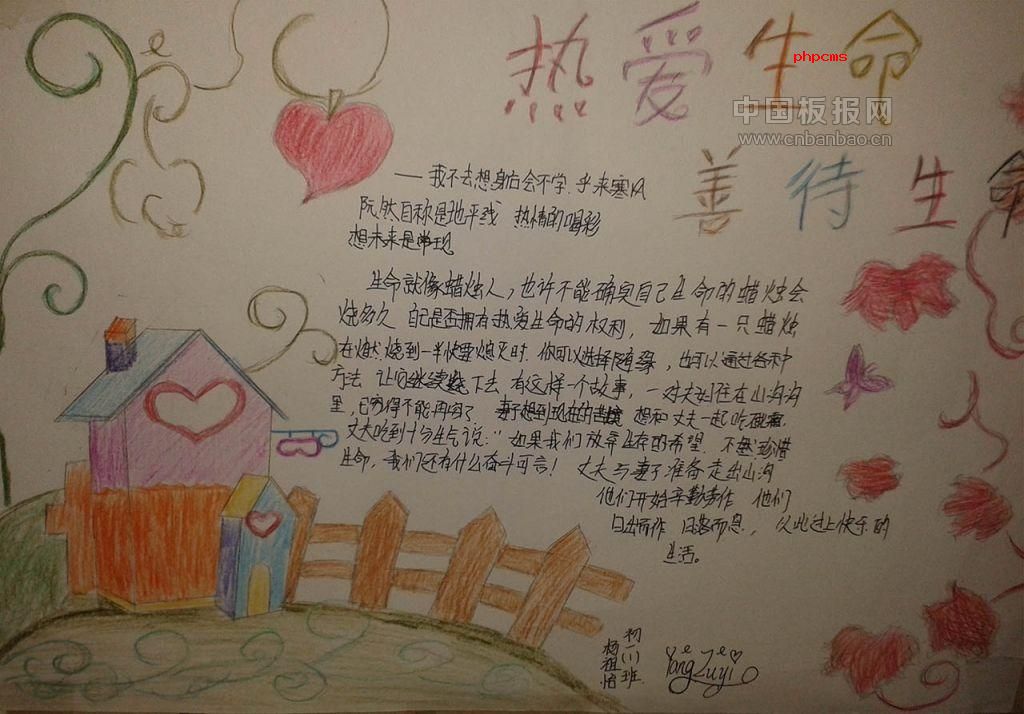 热爱生命
phpcms
中国板报网
www.cnbanbao.cn
善待生命
——我不去想身后会不会 寒风
既然 是地平线 热情的喝彩
想未来是
生命就像蜡烛人，也许不能确定自己生命的蜡烛会
烧多久 自己是否拥有热爱生命的权利，如果有一只蜡烛
在燃烧到一半快要熄灭时，你可以选择随缘，也可以通过各种
方法 让它继续烧下去 有这样一个故事，一对夫妇住在山沟沟
里，已穷得不能再穷了 妻子想到现在的 想和丈夫一起吃
丈夫吃到十分生气说：“如果我们放弃生存的希望 不 珍惜
生命，我们还有什么奋斗可言！ 丈夫与妻子准备走出山沟
他们开始辛勤劳作 他们
日出而作 日落而息，从此过上快乐的
生活。
初一(1)班
杨祖怡
YangZuyi